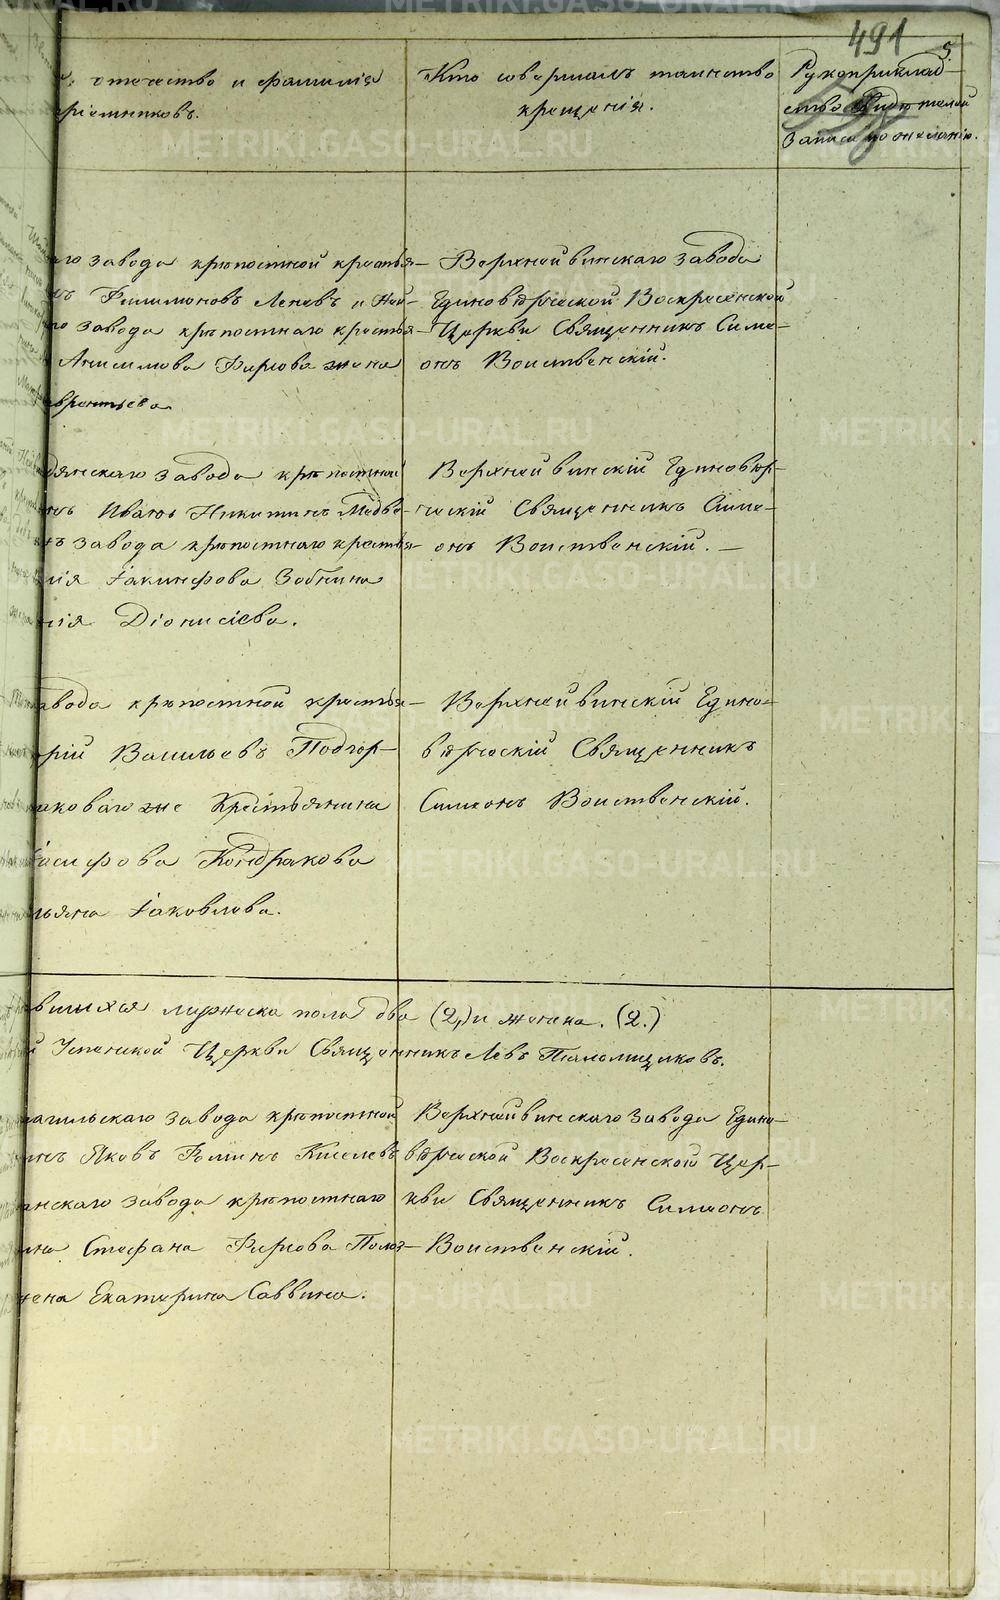 491
5
отчество и фамилія
пріемниковъ.
Кто совершалъ таинство
крещенія.
Рукоприклад-
ство свидѣтелей
записи по желанію.
завода крѣпостной крестья-
Филимоновъ Леневъ и Ней-
завода крѣпостнаго крестья-
Анисимова Фирсова жена
аврентьева
Верхнейвинскаго завода
Единовѣрческой Воскресенской
Церкви Священникъ Симе-
онъ Воиственскій.
янскаго завода крѣпостной
Иванъ Никитинъ Медвѣ-
завода крѣпостнаго крестья-
Іакинфова Зобнина
Діонисіева.
Верхнейвинскій Единовѣр-
ческій Священникъ Симе-
онъ Воиственскій. —
завода крѣпостной крестья-
Васильевъ Подгор-
таковаго же крестьянина
Кондракова
Іаковлева.
Верхнейвинскій Едино-
вѣрческій Священникъ
Симеонъ Воиственскій.
вшихся мужеска пола два (2,) и женска. (2.)
Успенской Церкви Священникъ Левъ
агильскаго завода крѣпостной
Яковъ Фоминъ Киселевъ
янскаго завода крѣпостнаго
Стефана Фирсова
жена Екатерина Саввина.
Верхнейвинскаго завода Едино-
вѣрческой Воскресенской Цер-
кви Священникъ Симеонъ
Воиственскій.
METRIKI.GASO-URAL.RU